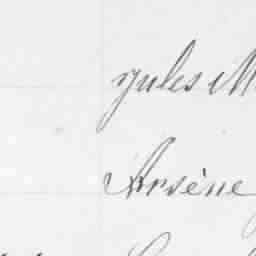 Jules M
Arsène